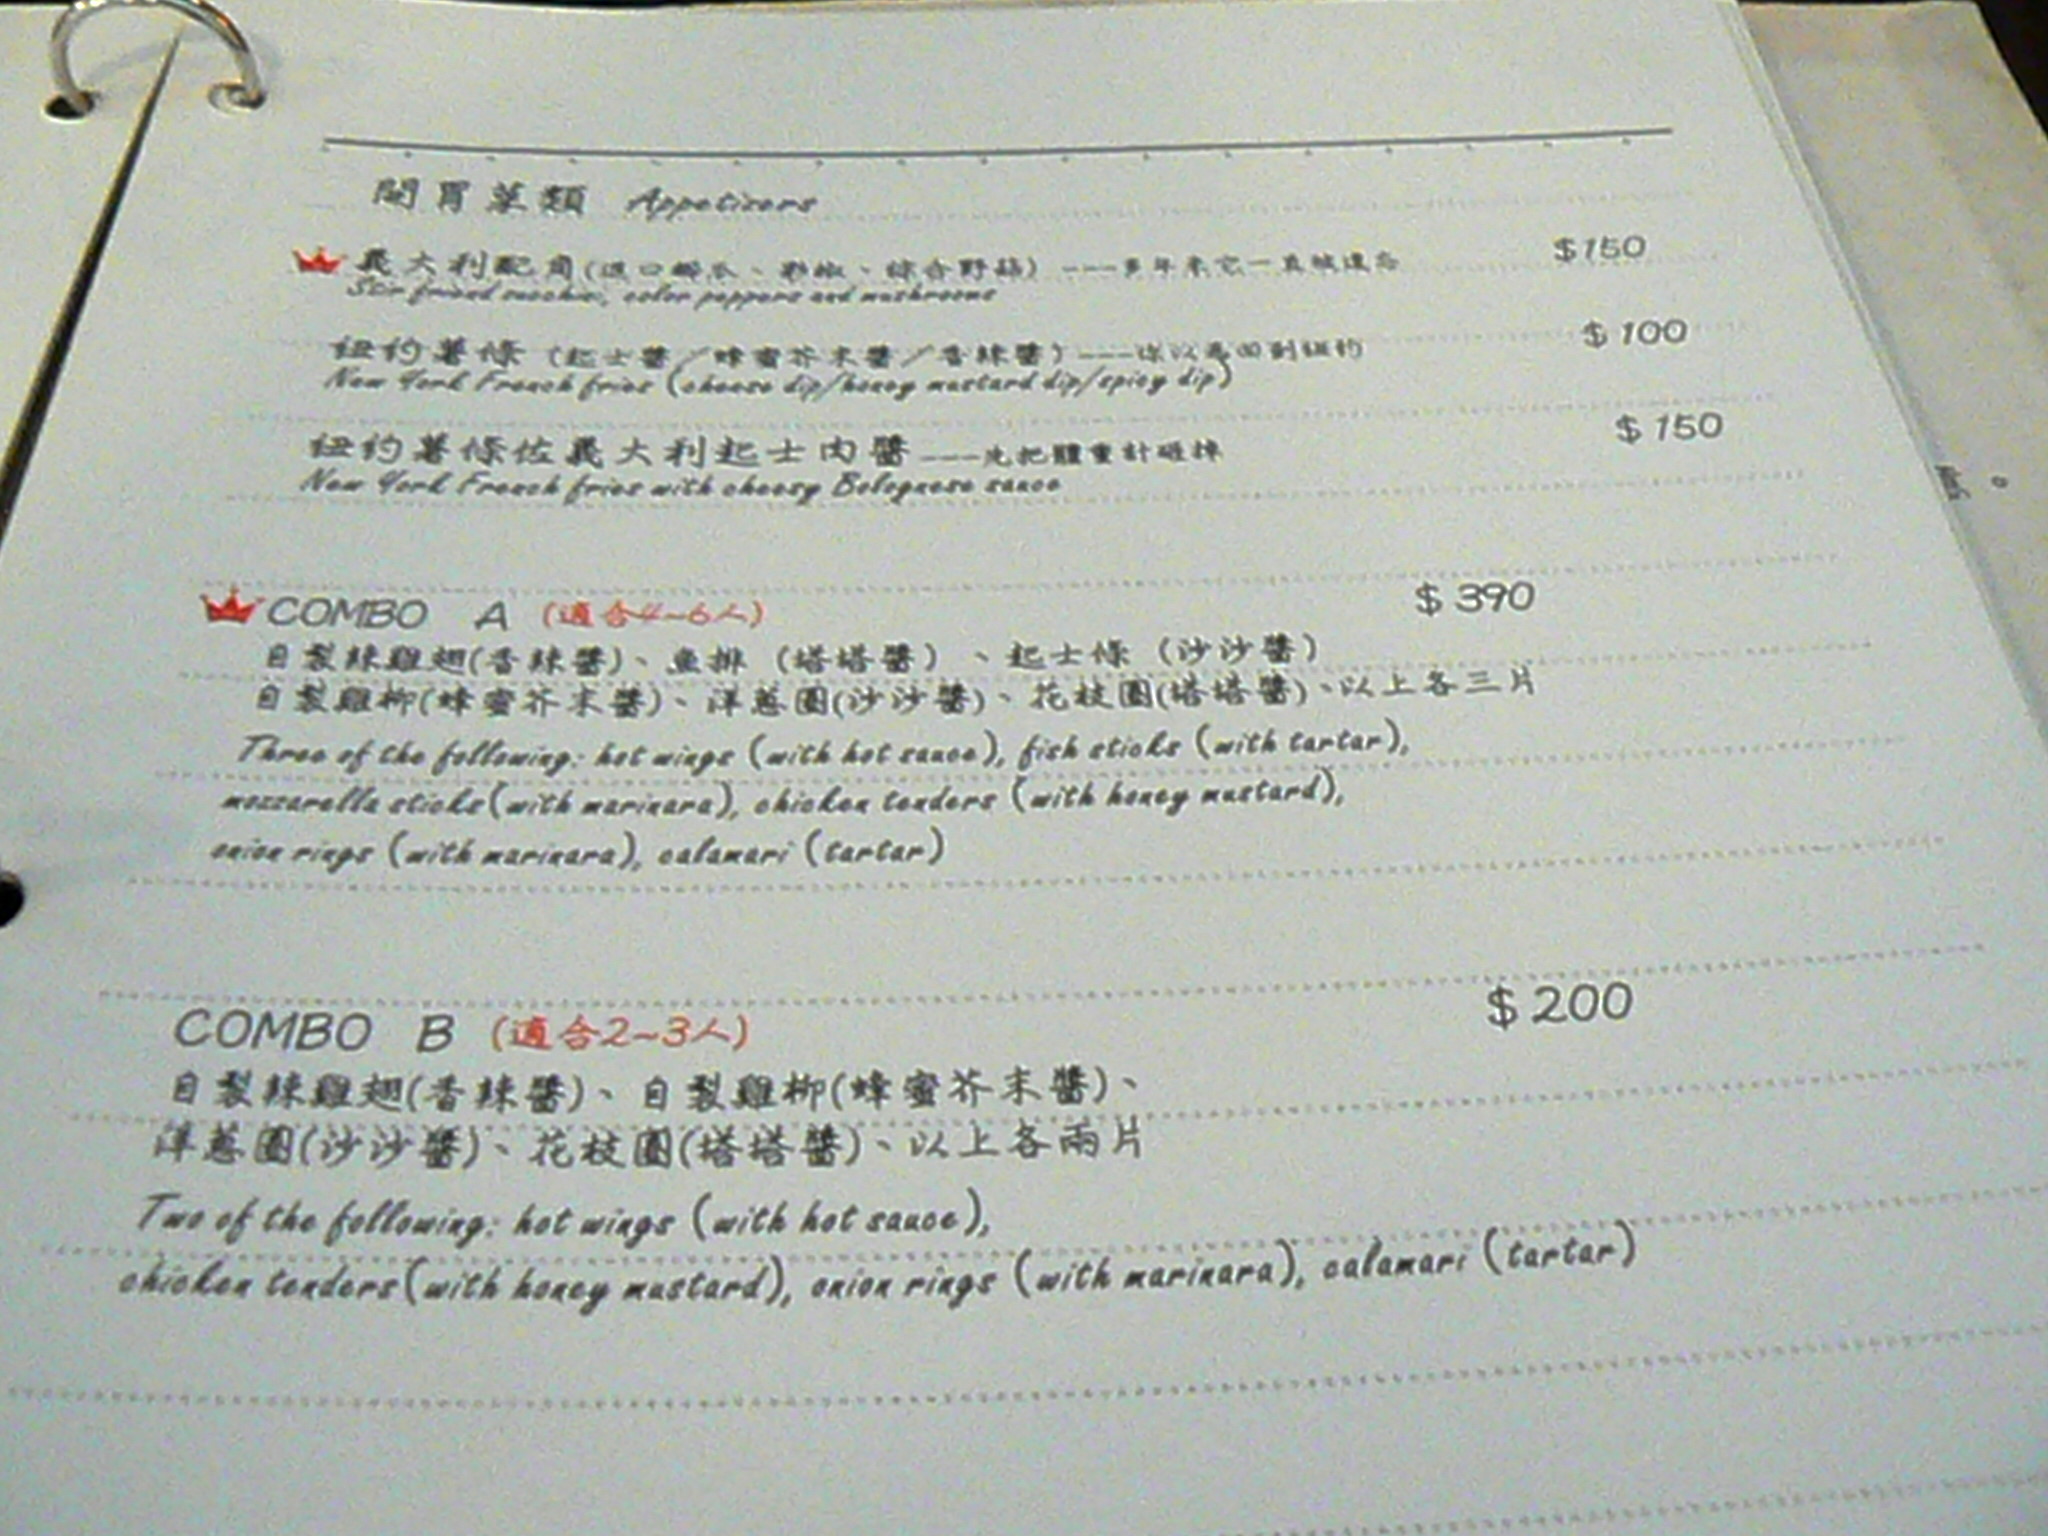 開胃菜類 Appetizers
義大利配角(進口櫛瓜、彩椒、綜合野菇) ---多年來它一直被遺忘 $150
Stir fried zucchini, color peppers and mushrooms
紐約薯條 (起士醬/蜂蜜芥末醬/香辣醬) ---你以為回到紐約 $100
New York French fries (cheese dip/honey mustard dip/spicy dip)
紐約薯條佐義大利起士肉醬 ---先把體重計砸掉 $150
New York French fries with cheesy Bolognese sauce
COMBO A (適合4~6人) $390
自製辣雞翅(香辣醬)、魚排 (塔塔醬) 、起士條 (沙沙醬)
自製雞柳(蜂蜜芥末醬)、洋蔥圈(沙沙醬)、花枝圈(塔塔醬)、以上各三片
Three of the following: hot wings (with hot sauce), fish sticks (with tartar),
mozzarella sticks(with marinara), chicken tenders (with honey mustard),
onion rings (with marinara), calamari (tartar)
COMBO B (適合2~3人) $200
自製辣雞翅(香辣醬)、自製雞柳(蜂蜜芥末醬)、
洋蔥圈(沙沙醬)、花枝圈(塔塔醬)、以上各兩片
Two of the following: hot wings (with hot sauce),
chicken tenders(with honey mustard), onion rings (with marinara), calamari (tartar)